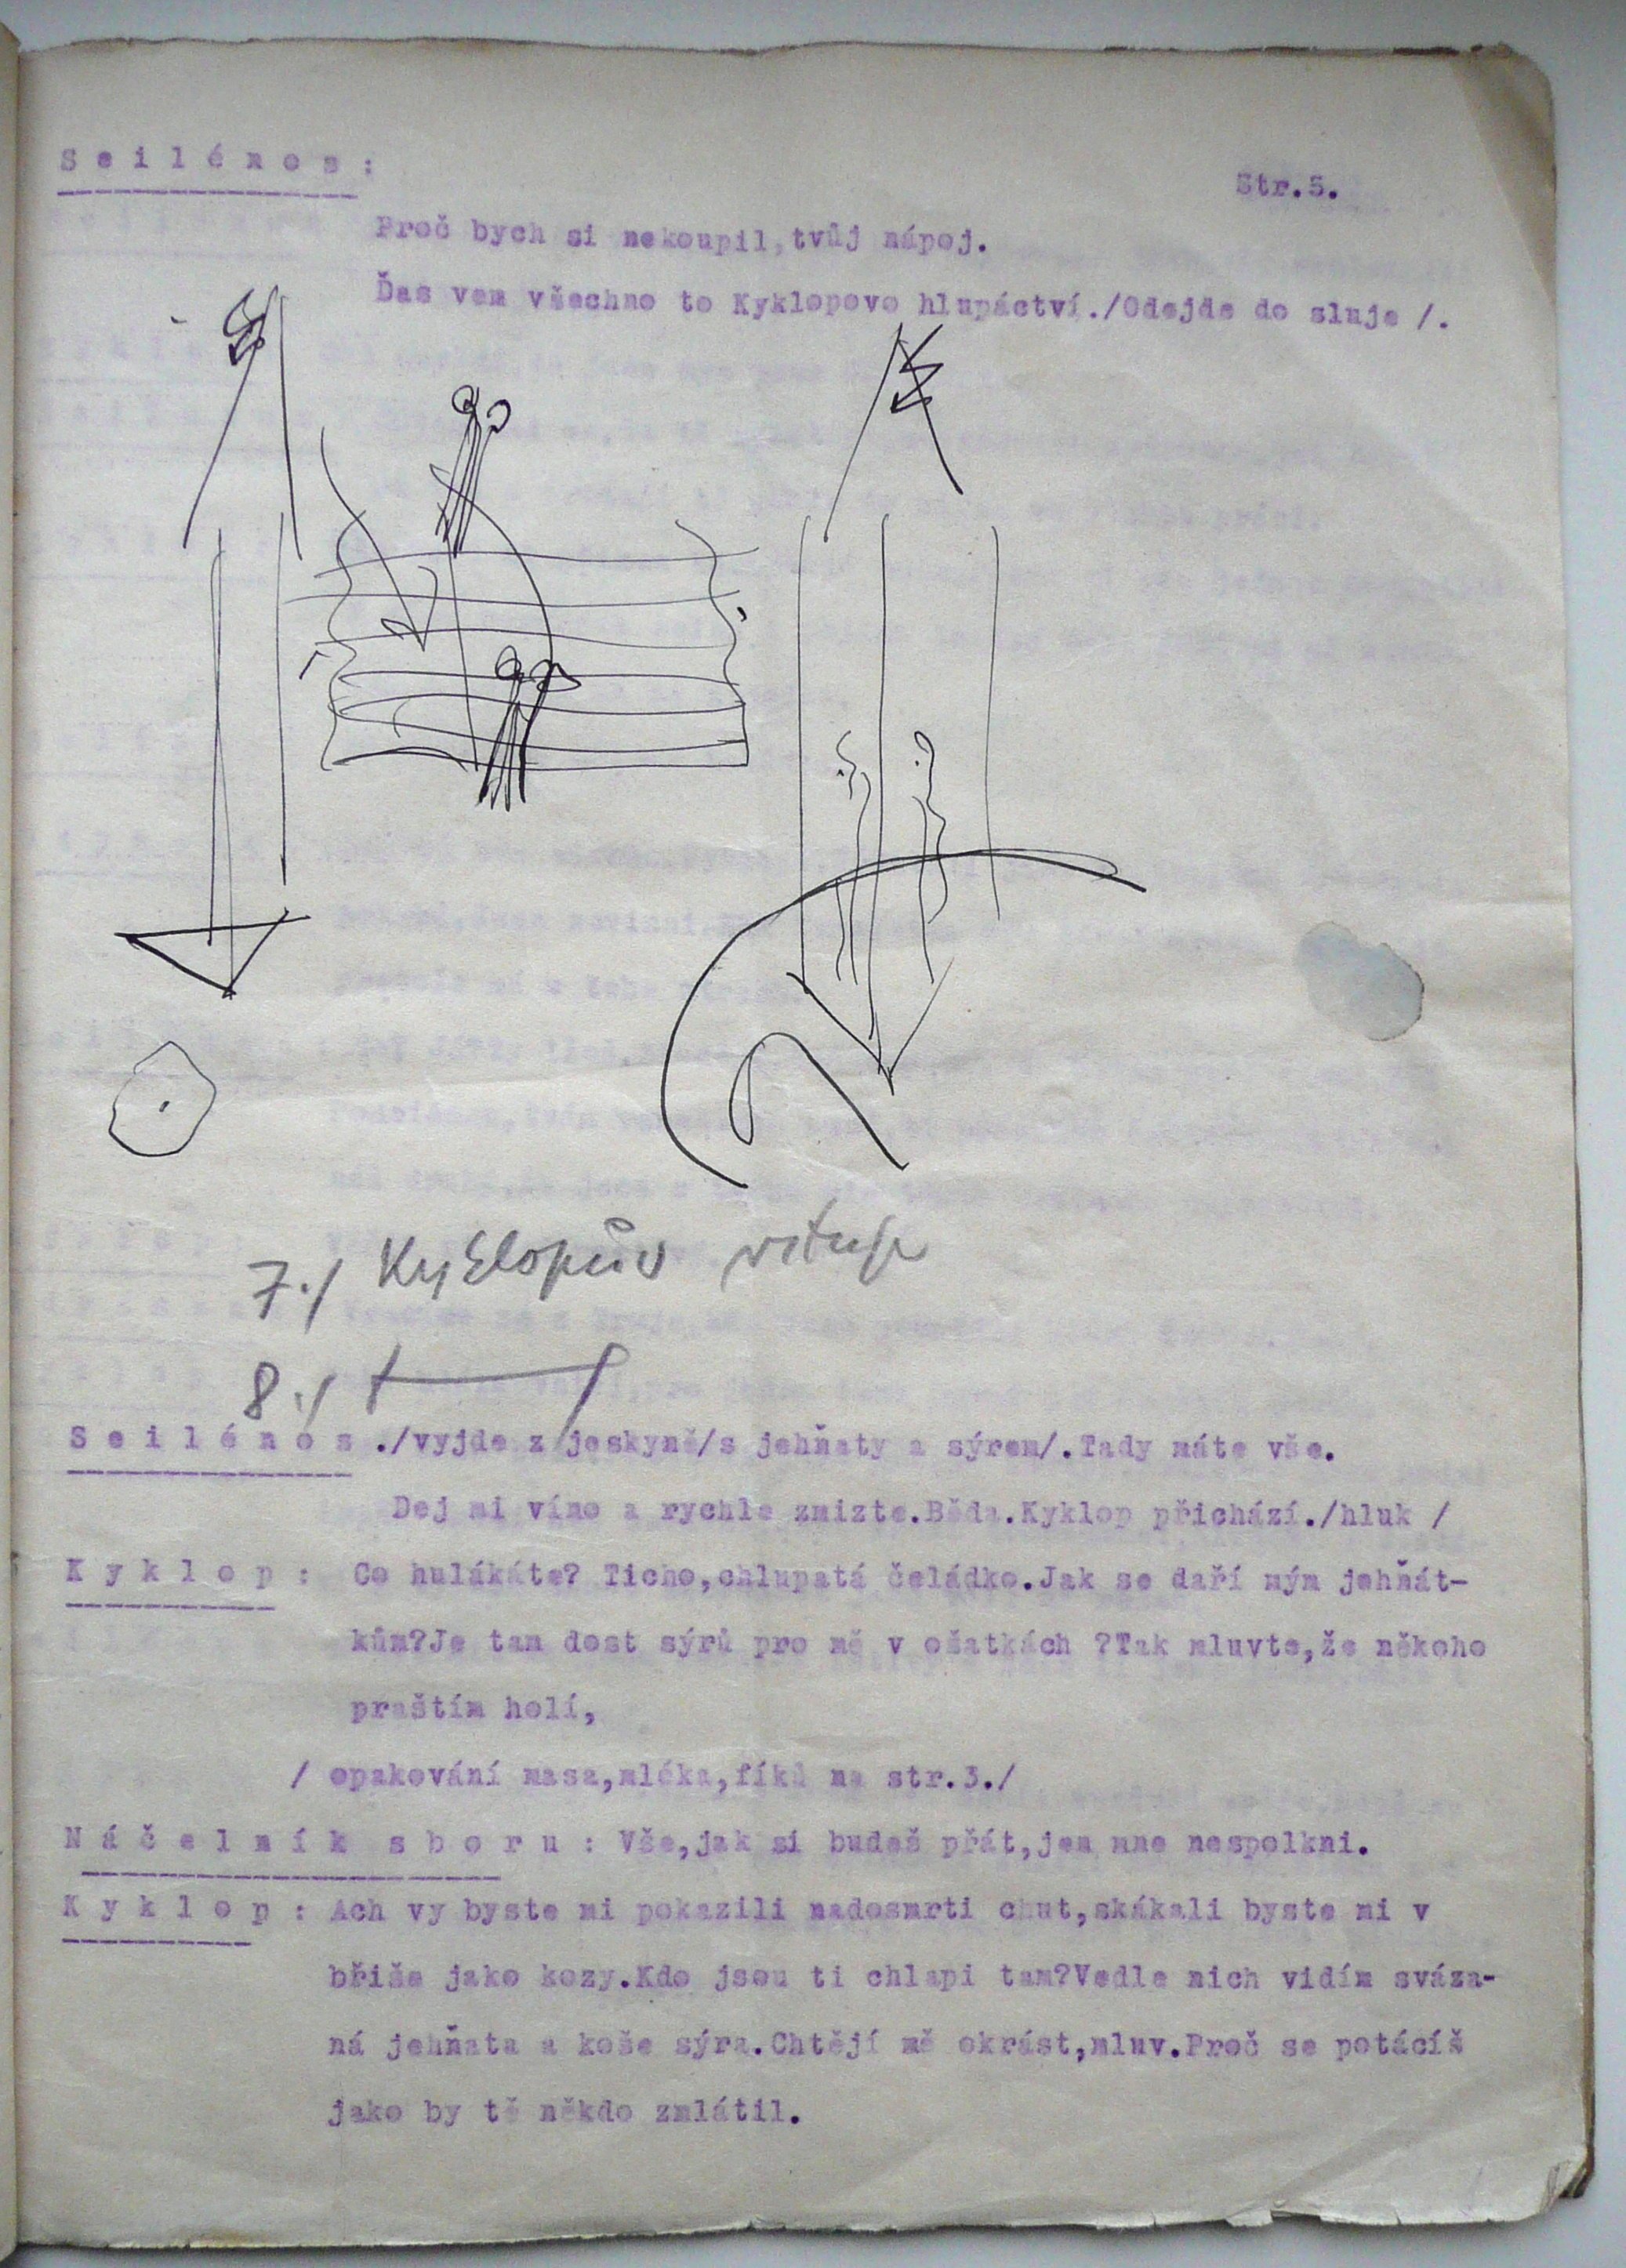 S e i l é n o s :
Str.5.
Proč bych si nekoupil,tvůj nápoj.
Ďas vem všechno to Kyklopovo hlupáctví./Odejde do sluje /.
7./ Kyklopův
8./
S e i l é n o s ./vyjde z jeskyně/s jehňaty a sýrem/.Tady máte vše.
Dej mi víno a rychle zmizte.Běda.Kyklop přichází./hluk /
K y k l o p : Co hulákáte? Ticho,chlupatá čeládko.Jak se daří mým jehňát-
kům?Je tam dost sýrů pro mě v ošatkách ?Tak mluvte,že někoho
praštím holí,
/ opakování masa,mléka,fíků na str.3./
N á č e l n í k s b o r u : Vše,jak si budeš přát,jen mne nespolkni.
K y k l o p : Ach vy byste mi pokazili nadosmrti chut,skákali byste mi v
břiše jako kozy.Kdo jsou ti chlapi tam?Vedle nich vidím sváza-
ná jehňata a koše sýra.Chtějí mě okrást,mluv.Proč se potácíš
jako by tě někdo zmlátil.